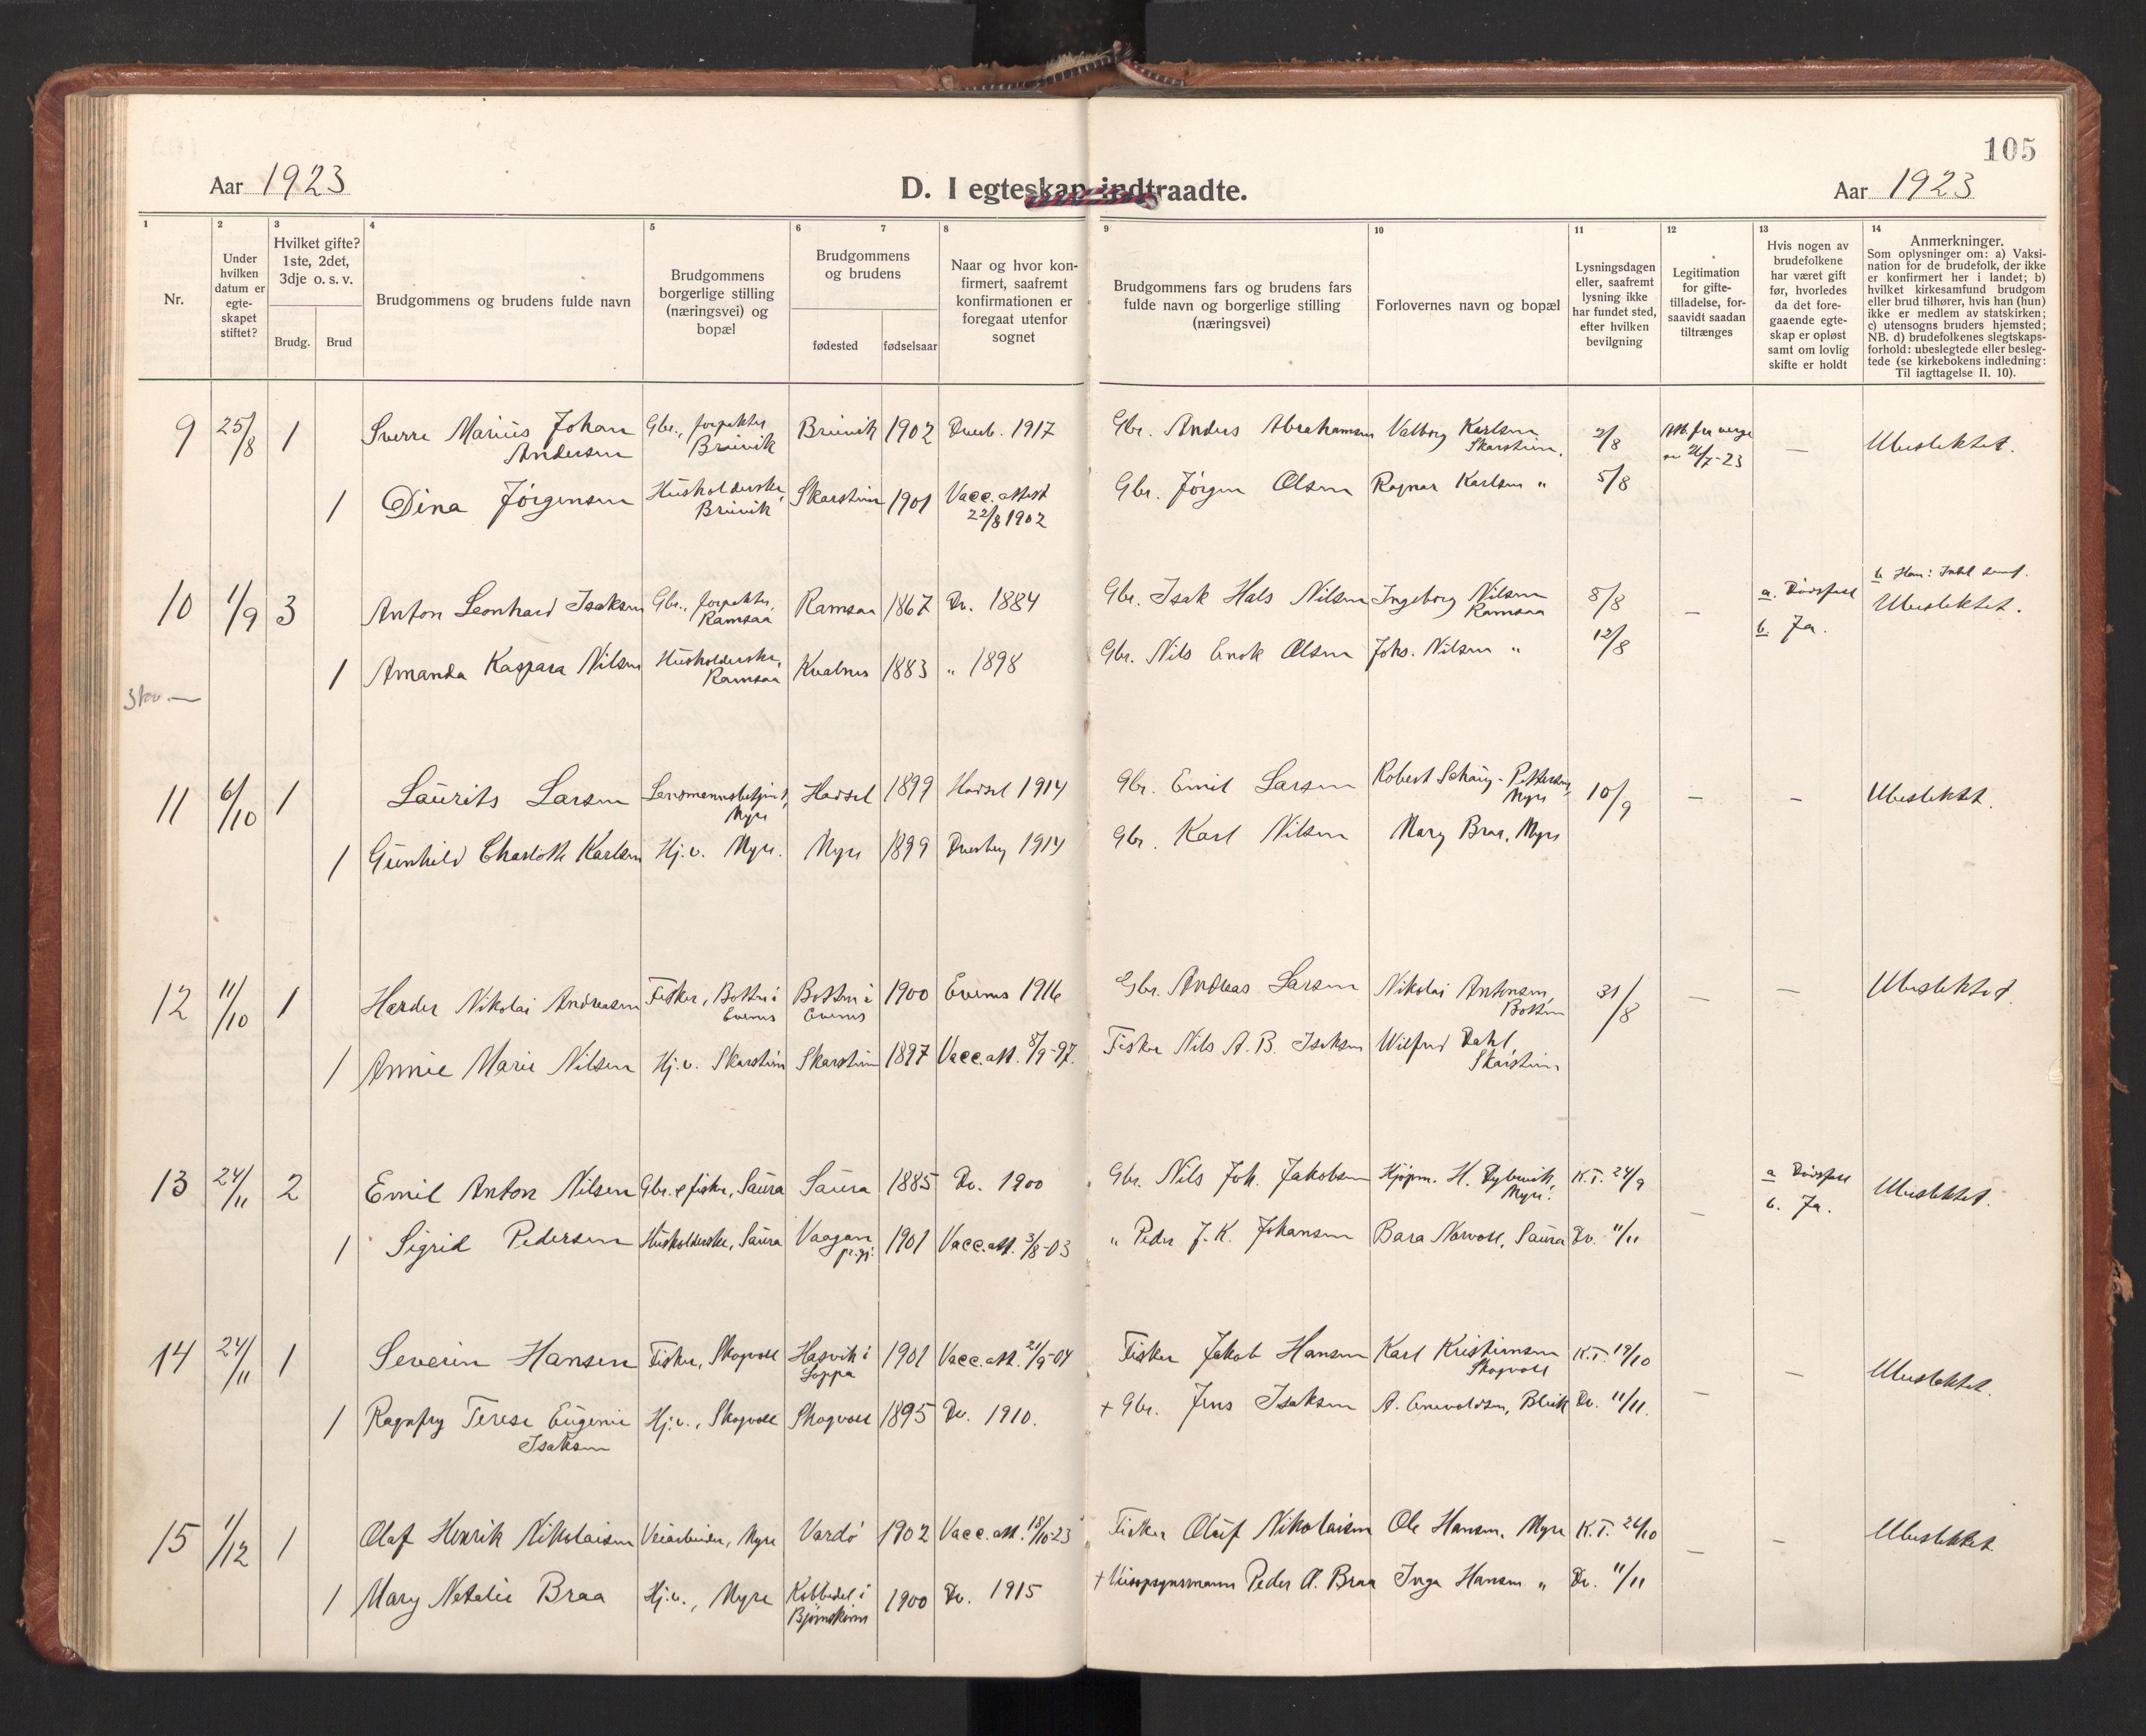 105
Aar 1923
D. I egteskap indtraadte.
Aar 1923
1
2
3
4
5
6
7
8
9
10
11
12
13
14
Nr.
Under
hvilken
datum er
egte-
skapet
stiftet?
Hvilket gifte?
1ste, 2det,
3dje o. s. v.
Brudg.
Brud
Brudgommens og brudens fulde navn
Brudgommens
borgerlige stilling
(næringsvei) og
bopæl
Brudgommens
og brudens
fødested
fødselsaar
Naar og hvor kon-
firmert, saafremt
konfirmationen er
foregaat utenfor
sognet
Brudgommens fars og brudens fars
fulde navn og borgerlige stilling
(næringsvei)
Forlovernes navn og bopæl
Lysningsdagen
eller, saafremt
lysning ikke
har fundet sted,
efter hvilken
bevilgning
Legitimation
for gifte-
tilladelse, for-
saavidt saadan
tiltrænges
Hvis nogen av
brudefolkene
har været gift
før, hvorledes
da det fore-
gaaende egte-
skap er opløst
samt om lovlig
skifte er holdt
Anmerkninger.
Som oplysninger om: a) Vaksi-
nation for de brudefolk, der ikke
er konfirmert her i landet; b)
hvilket kirkesamfund brudgom
eller brud tilhører, hvis han (hun)
ikke er medlem av statskirken;
c) utensogns bruders hjemsted;
NB. d) brudefolkenes slegtskaps-
forhold: ubeslegtede eller besleg-
tede (se kirkebokens indledning:
Til iagttagelse II. 10).
9 25/8 1 Sverre Marius Johan Gbr., forpakter Bruvik 1902 Dverb. 1917 Gbr. Anders Abrahamsen Valborg Karlsen 2/8 Att. fra verge — Ubeslektet.
Andersen Bruvik Skarstein. 26/7-23
1 Dina Jørgensen Husholderske, Skarstein 1901 Vacc. attest Gbr. Jørgen Olsen Ragnar Karlsen " 5/8
Bruvik 22/8 1902
10 1/9 3 Anton Leonhard Isaksen Gbr., forpakter, Ramsaa 1867 Dv. 1884 Gbr. Isak Hals Nilsen Ingeborg Nilsen 8/8 — a. Dødsfall b. Han:
Ramsaa Ramsaa b. Ja. Ubeslektet.
1 Amanda Kaspara Nilsen Husholderske, Kvalnes 1883 " 1898 Gbr. Nils Enok Olsen Johs. Nilsen " 12/8
Ramsaa
11 6/10 1 Laurits Larsen Lensmannsbetjent, Hadsel 1899 Hadsel 1914 Gbr. Emil Larsen Robert Schøug-Pettersen, 10/9 — — Ubeslektet.
Myre Myre
1 Gunhild Charlotte Karlsen Hj.v. Myre. Myre 1899 Dverberg 1914 Gbr. Karl Nilsen Mary Braa, Myre
12 11/10 1 Hærder Nikolai Andreasen Fisker, Botten i Botten i 1900 Evenes 1916 Gbr. Andreas Larsen Nikolai Antonsen, 31/8 — — Ubeslektet.
Evenes Evenes Botten
1 Annie Marie Nilsen Hj.v. Skarstein Skarstein 1897 Vacc.att. 8/9-97. Fisker Nils A. B. Isaksen Wilfred Dahl,
Skarstein
13 24/11 2 Emil Anton Nilsen Gbr. & fisker, Saura Saura 1885 Dv. 1900 Gbr. Nils Joh. Jakobsen Kjøpm. H. Dybvik, K.T. 24/9 — a Dødsfall Ubeslektet.
Myre. b. Ja.
1 Sigrid Pedersen Husholderske, Saura Vaagan 1901 Vacc.att. 3/8-03 " Peder J. K. Johansen Bara Norvoll, Saura Dv. 11/11
pr.gj.
14 24/11 1 Severin Hansen Fisker, Skogvoll Hasvik i 1901 Vacc.att. 21/9-04 Fisker Jakob Hansen Karl Kristiansen K.T. 19/10 — — Ubeslektet.
Loppa Skogvoll
1 Ragnfrg Terese Eugenie Hj.v., Skogvoll Skogvoll 1895 Dv. 1910. + Gbr. Jens Isaksen A. Enevoldsen, Bleik Dv. 11/11.
Isaksen
15 1/12 1 Olaf Henrik Nikolaisen Veiarbeider, Myre Vardø 1902 Vacc.att. 18/10-23 Fisker Oluf Nikolaisen Ole Hansen, Myre K.T. 26/10 — — Ubeslektet.
1 Mary Natalie Braa Hj.v., Myre Kobbedal i 1900 Dv. 1915 + Veiopsynsmann Peder A. Braa Inga Hansen " Dv. 11/11
Bjørnskinn